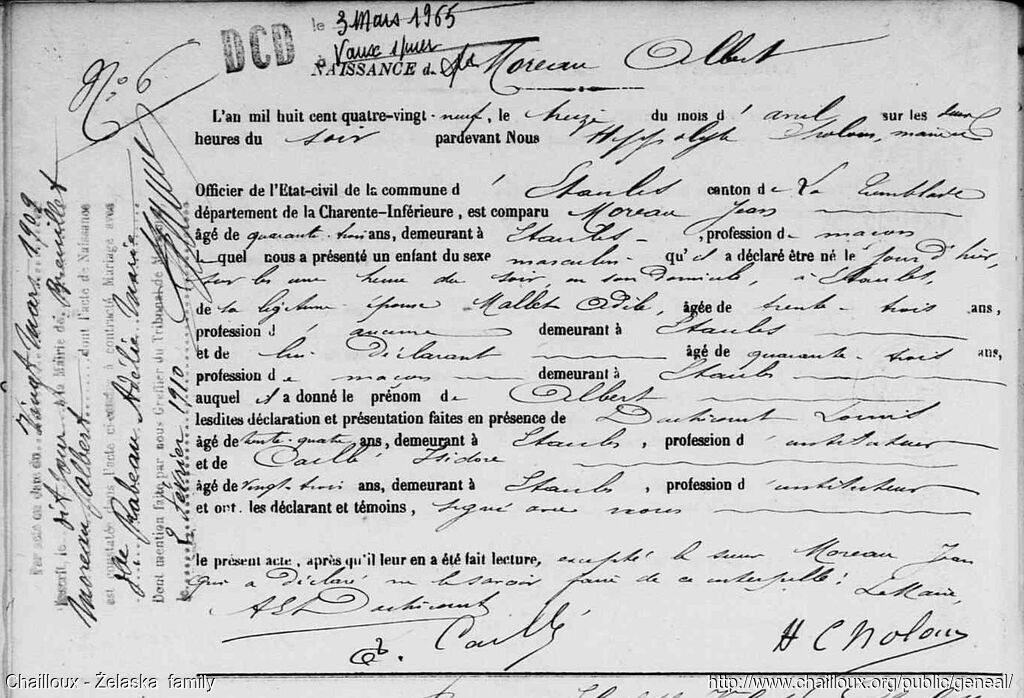 DCD
le 3 Mars 1965
à Vaux s/mer
No 6
NAISSANCE de Moreau Albert
L'an mil huit cent quatre-vingt-neuf, le treize du mois d'avril sur les deux
heures du soir pardevant Nous Hyppolyte maire
Officier de l'Etat-civil de la commune d' Etaules canton de La Tremblade
département de la Charente-Inférieure, est comparu Moreau Jean
âgé de quarante-trois ans, demeurant à Etaules, profession de maçon
lequel nous a présenté un enfant du sexe masculin qu'il a déclaré être né le jour d'hier,
sur les une heure du soir, en son domicile, à Etaules,
de sa légitime épouse Mallet Odile, âgée de trente-trois ans,
profession d'aucune demeurant à Etaules
et de lui déclarant âgé de quarante-trois ans,
profession de maçon demeurant à Etaules
auquel il a donné le prénom de Albert
lesdites déclaration et présentation faites en présence de Louis
âgé de trente-quatre ans, demeurant à Etaules, profession d'instituteur
et de Caillé Isidore
âgé de vingt-trois ans, demeurant à Etaules, profession d'instituteur
et ont les déclarant et témoins, signé avec nous
le présent acte, après qu'il leur en a été fait lecture, excepté le sieur Moreau Jean
qui a déclaré ne le savoir faire de ce interpellé.
Le Maire,
Caillé
Par acte en date du Vingt Mars 1909
inscrit le dit jour à la Mairie de Breuillet
Moreau Albert dont l'acte de Naissance
est constaté dans l'acte ci-contre, a contracté Mariage avec
Dlle Rabeau Adélia Maria
Dont mention faite par nous Greffier du Tribunal de
le février 1910
Chailloux - Żelaska family
http://www.chailloux.org/public/geneal/